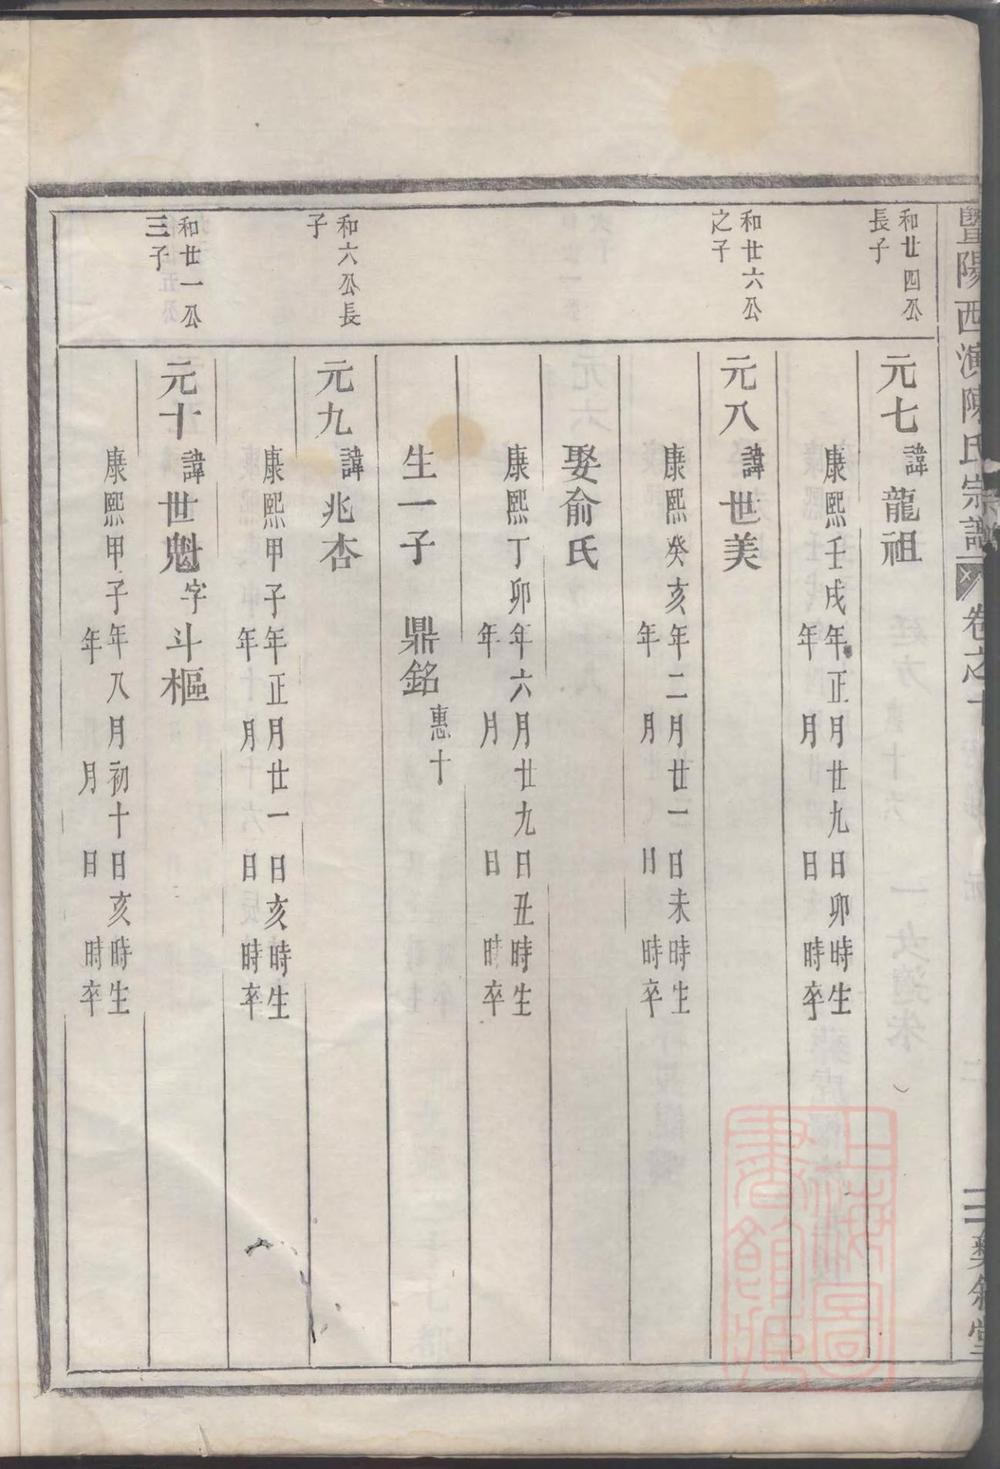 暨陽西演陳氏宗譜
卷之十
三
和廿四公
長子
元七 諱龍祖
康熙壬戌年正月廿九日卯時生
年 月 日 時卒
和廿六公
之子
元八 諱世美
康熙癸亥年二月廿一日未時生
年 月 日 時卒
娶俞氏
康熙丁卯年六月廿九日丑時生
年 月 日 時卒
生一子 鼎銘 惠十
和六公長
子
元九 諱兆杏
康熙甲子年正月廿一日亥時生
年 月 日 時卒
和廿一公
三子
元十 諱世魁 字斗樞
康熙甲子年八月初十日亥時生
年 月 日 時卒
上海圖書館藏